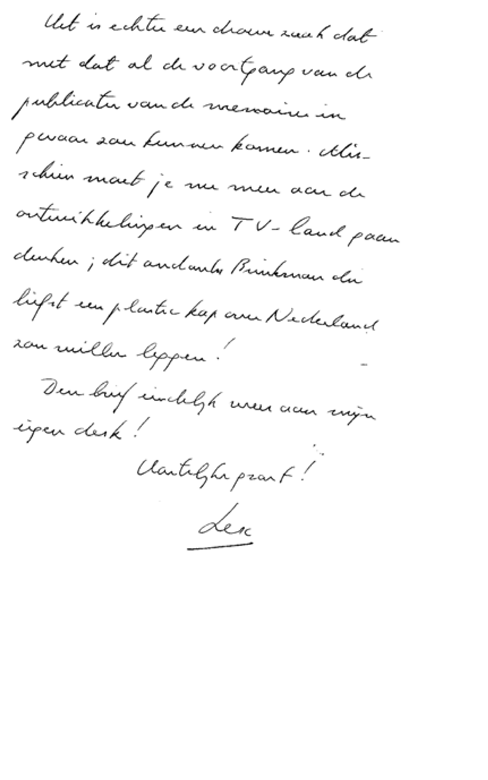 Het is echter een droeve zaak dat
met dat al de voortgang van de
publicatie van de memoires in
gevaar zou kunnen komen. Mis-
schien moet je nu meer aan de
ontwikkelingen in TV-land gaan
denken; dit ondanks Brinkman die
liefst een plastic kap over Nederland
zou willen leggen!
Deze brief eindelijk weer aan mijn
eigen desk!
Hartelijke groet!
Lex